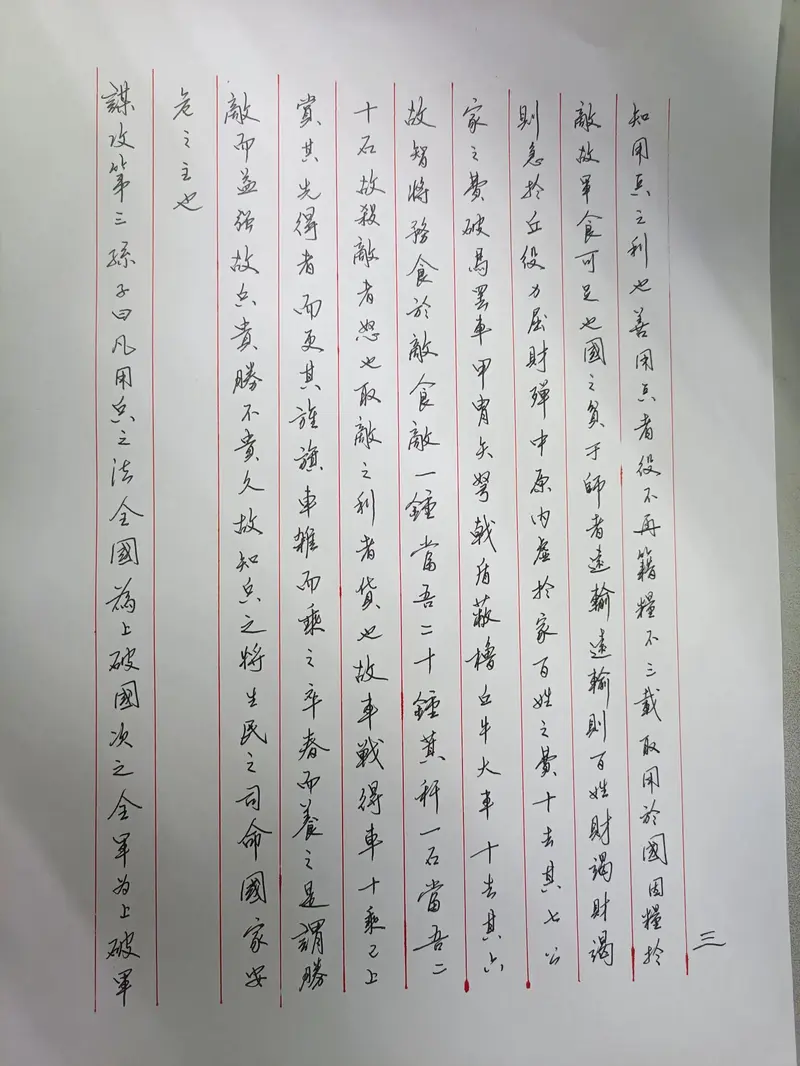 三
知用兵之利也善用兵者役不再籍糧不三載取用於國因糧於
敵故軍食可足也國之貧于師者遠輸遠輸則百姓財竭財竭
則急於丘役力屈財殫中原内虛於家百姓之費十去其七公
家之費破馬罷車甲胄矢弩戟盾蔽櫓丘牛大車十去其六
故智將務食於敵食敵一鍾當吾二十鍾萁秆一石當吾二
十石故殺敵者怒也取敵之利者貨也故車戰得車十乘已上
賞其先得者而更其旌旗車雜而乘之卒善而養之是謂勝
敵而益強故兵貴勝不貴久故知兵之將生民之司命國家安
危之主也
謀攻第三孫子曰凡用兵之法全國為上破國次之全軍為上破軍